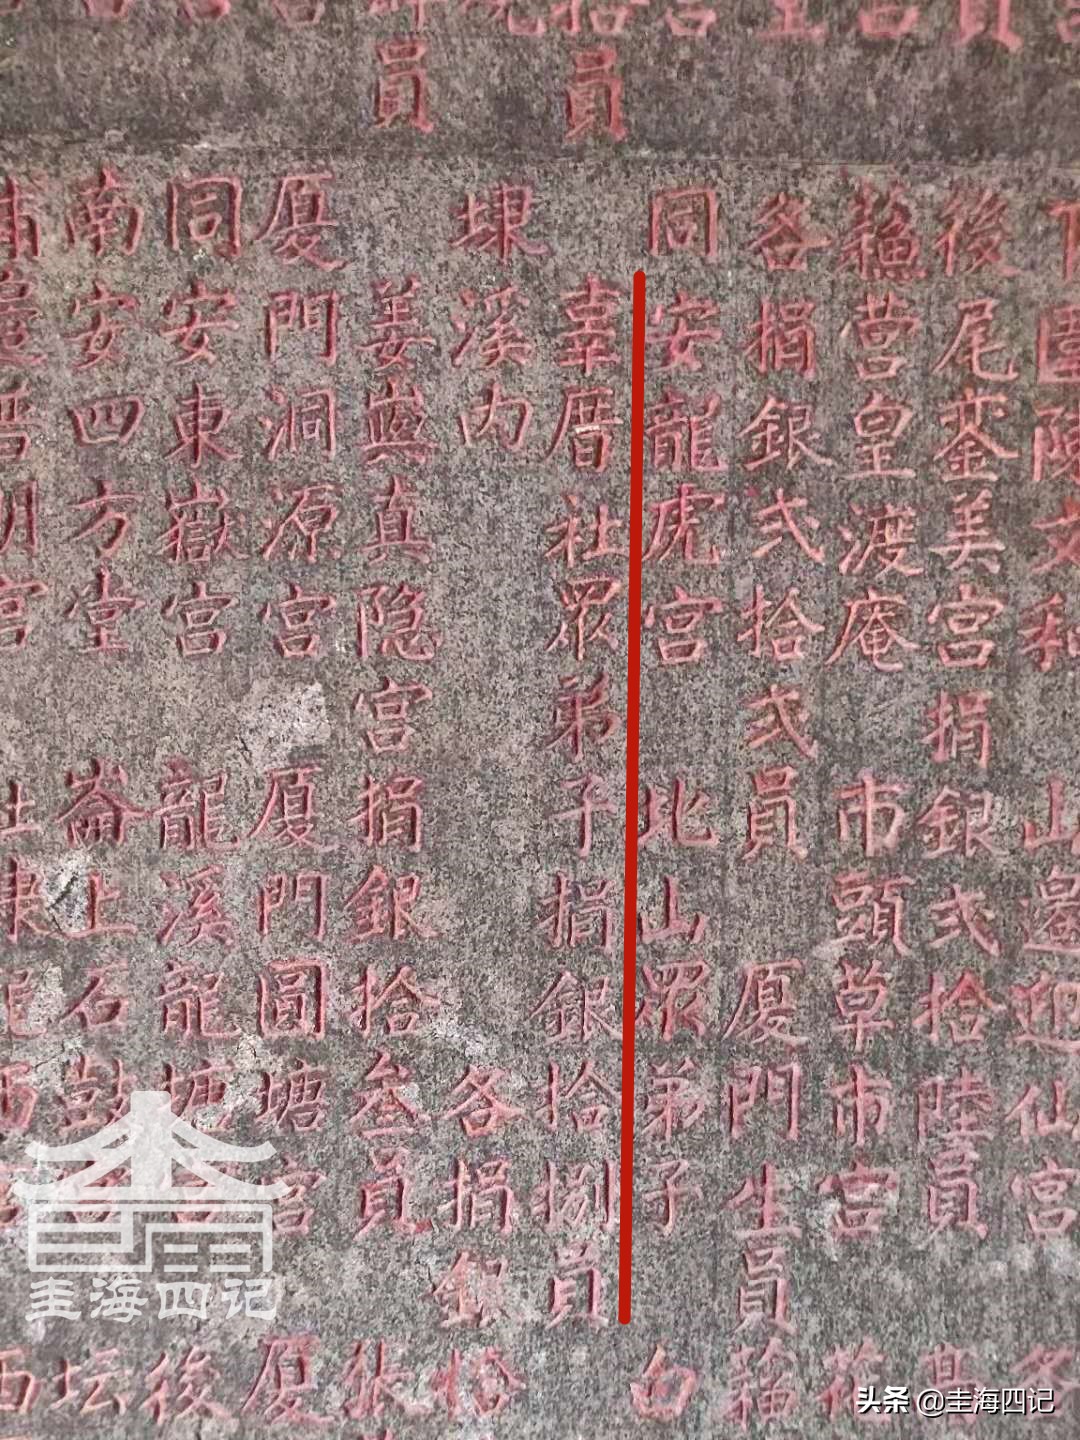 圍陳文和 山邊迎仙宮
後尾鑾美宮捐銀弍拾陸員
蘓營皇渡庵 市頭草市宮
各捐銀弍拾弍員 厦門生員
同安龍虎宮 北山眾弟子 白
員
辜厝社眾弟子捐銀拾捌員
埭溪內 各捐銀拾
員
姜 真隐宮捐銀拾叁員
厦門洞源宮 厦門圓塘宮 厦
同安東嶽宮 龍溪龍塘宮 後
南安四方堂 崙上石鼓宮 坛
普明宮
圭海四记
头条 @圭海四记